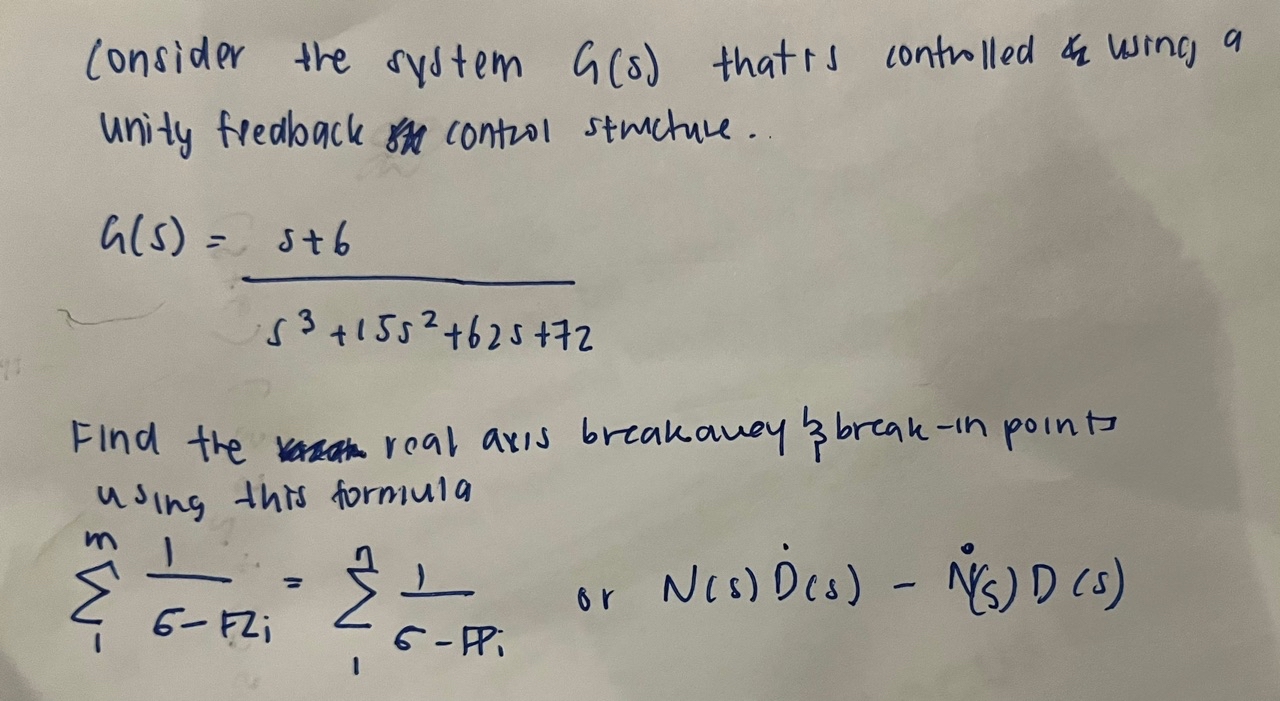 Consider the system G(s) that is controlled using a
unity feedback control structure..
G(s) = s+6
s³+15s²+62s+72
Find the real axis breakaway & break-in points
using this formula
m∑1 1/(σ-FZi) = n∑1 1/(σ-FPi) or N(s)Ḋ(s) - Ṅ(s)D(s)